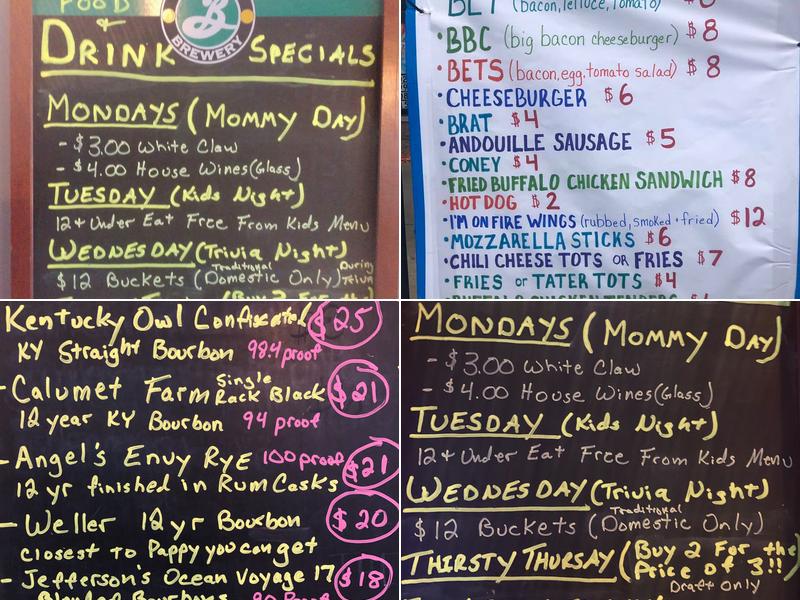 FOOD
&
DRINK SPECIALS
BREWERY
MONDAYS (MOMMY DAY)
- $3.00 White Claw
- $4.00 House Wines (Glass)
TUESDAY (Kids Night)
12 + Under Eat Free From Kids Menu
WEDNESDAY (Trivia Night)
$12 Buckets (Traditional Domestic Only) During
BLT (bacon, lettuce, tomato) $8
• BBC (big bacon cheeseburger) $8
• BETS (bacon, egg, tomato salad) $8
• CHEESEBURGER $6
• BRAT $4
• ANDOUILLE SAUSAGE $5
• CONEY $4
• FRIED BUFFALO CHICKEN SANDWICH $8
• HOT DOG $2
• I'M ON FIRE WINGS (rubbed, smoked + fried) $12
• MOZZARELLA STICKS $6
• CHILI CHEESE TOTS OR FRIES $7
• FRIES or TATER TOTS $4
Kentucky Owl Confiscated $25
KY Straight Bourbon 98.4 proof
- Calumet Farm Single Rack Black $21
12 year KY Bourbon 94 proof
- Angel's Envy RYE 100 proof $21
12 yr finished in Rum Casks
- Weller 12 yr Bourbon $20
closest to Pappy you can get
- Jefferson's Ocean Voyage 17 $18
MONDAYS (MOMMY DAY)
- $3.00 White Claw
- $4.00 House Wines (Glass)
TUESDAY (Kids Night)
12 + Under Eat Free From Kids Menu
WEDNESDAY (Trivia Night)
$12 Buckets (Traditional Domestic Only)
THIRSTY THURSAY (Buy 2 For the
Price of 3!!
Draft Only